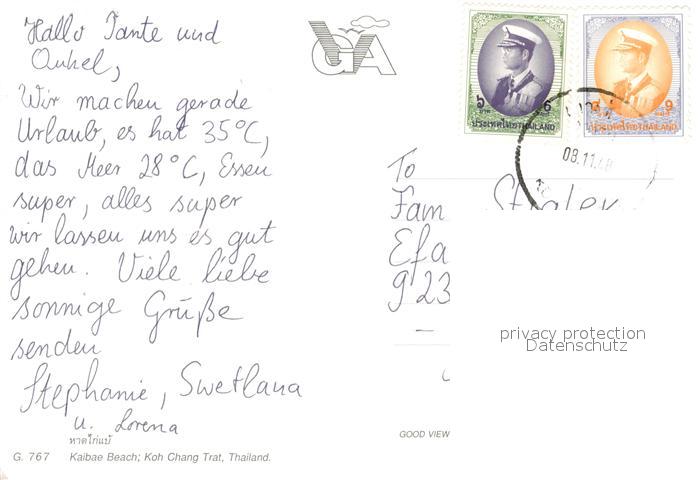 Hallo Tante und
Onkel,
Wir machen gerade
Urlaub, es hat 35°C,
das Meer 28°C, Essen
super, alles super
wir lassen uns es gut
gehen. Viele liebe
sonnige Grüße
senden
Stephanie, Swetlana
u. Lorena
หาดไก่แบ้
G. 767 Kaibae Beach; Koh Chang Trat, Thailand.
VGA
6
ประเทศไทย THAILAND
9
ประเทศไทย THAILAND
08.11.48
To
Fam
Efa
923
GOOD VIEW
privacy protection
Datenschutz